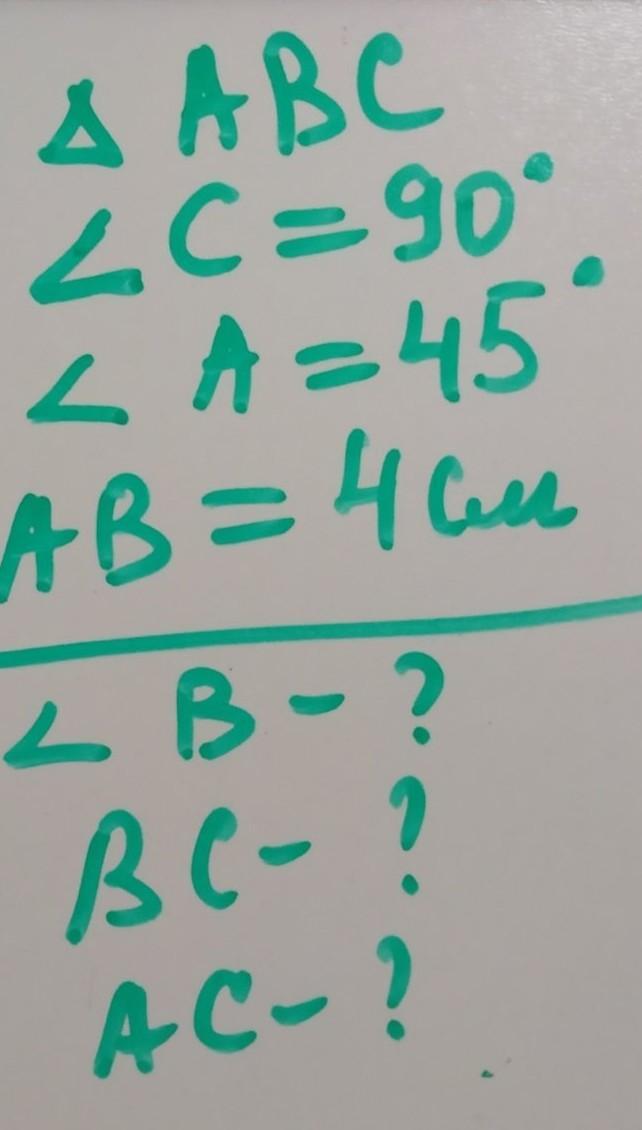 Δ ABC
∠ C = 90°
∠ A = 45°
AB = 4 см
∠ B - ?
BC - ?
AC - ?